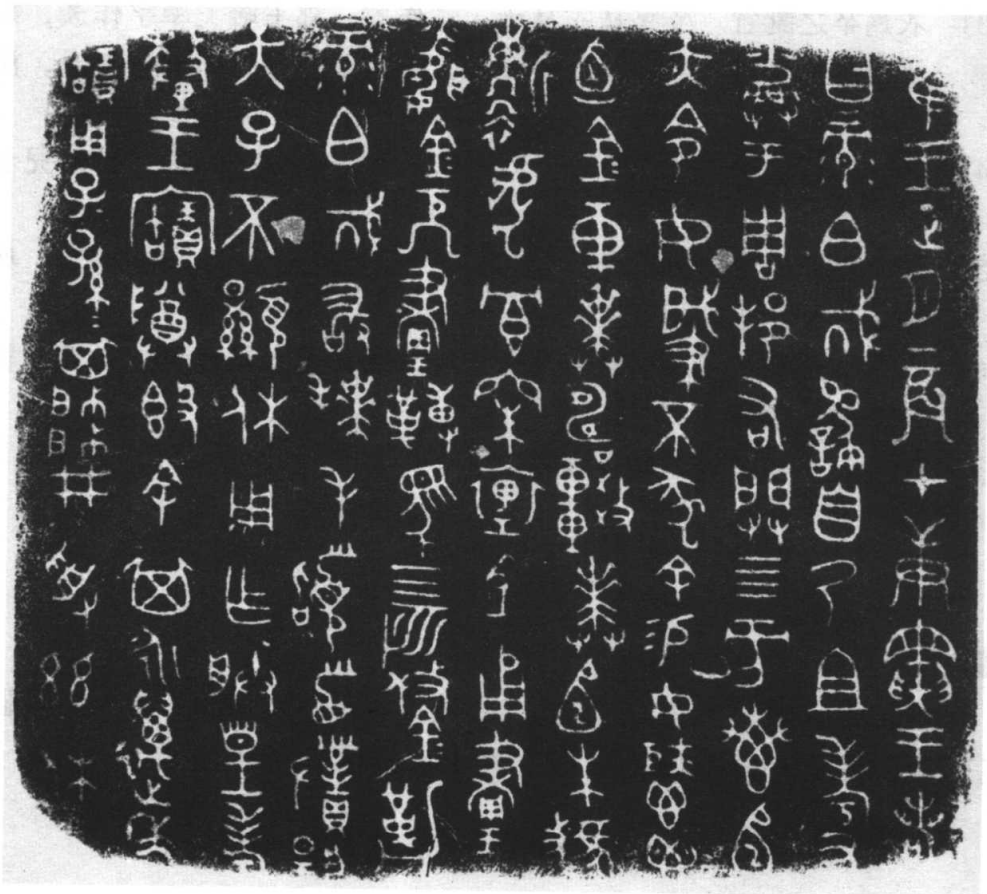 隹王正月辰才庚寅王若
曰彔白𢦏繇自乃且考又
爵于周邦右闢四方叀𢎛
天令女肇不彖余易女秬鬯
卣金車𠦪幬較𠦪𢎛朱虢
靳虎冟朱裏金甬畫
金厄畫轉馬四匹鋚勒
彔白𢦏敢拜手𩒨首對揚
天子不顯休用乍朕皇考釐
王寶尊𣪘余其永萬年
寶用子子孫孫其帥井受茲休